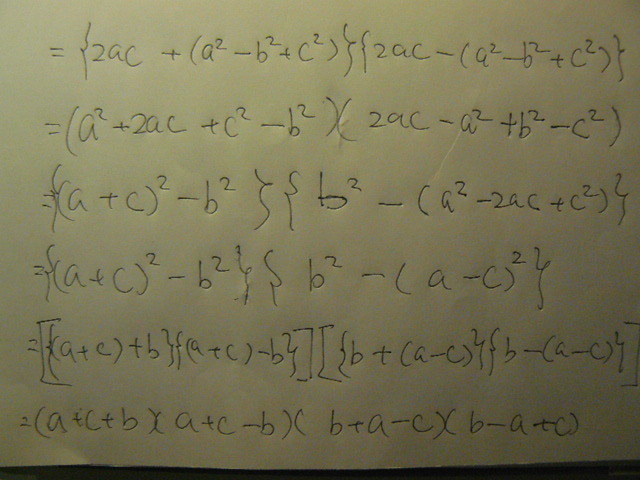 = {2ac + (a² − b² + c²)}{2ac − (a² − b² + c²)}
= (a² + 2ac + c² − b²)(2ac − a² + b² − c²)
= {(a + c)² − b²}{b² − (a² − 2ac + c²)}
= {(a + c)² − b²}{b² − (a − c)²}
= [{(a + c) + b}{(a + c) − b}][{b + (a − c)}{b − (a − c)}]
= (a + c + b)(a + c − b)(b + a − c)(b − a + c)